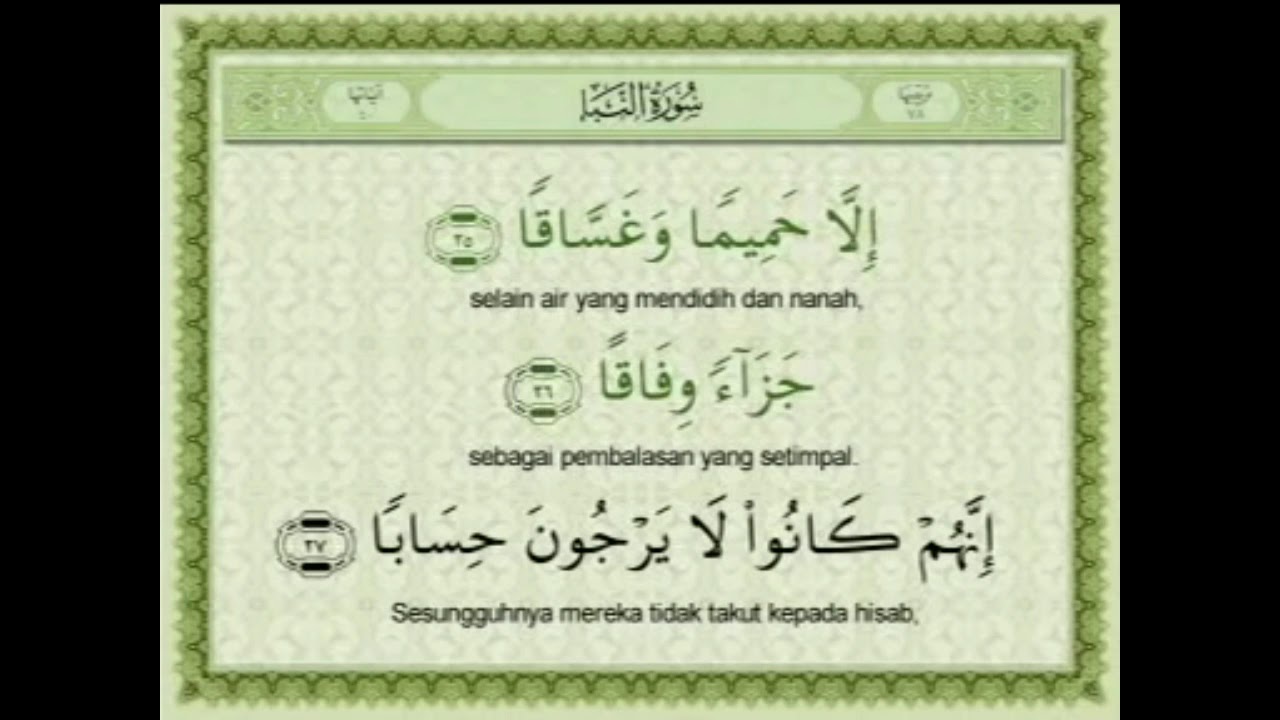 ترتيبها سُورَةُ النَّبَإِ آياتها
٧٨ ٤٠
إِلَّا حَمِيمًا وَغَسَّاقًا ٢٥
selain air yang mendidih dan nanah,
جَزَآءً وِفَاقًا ٢٦
sebagai pembalasan yang setimpal.
إِنَّهُمْ كَانُوا۟ لَا يَرْجُونَ حِسَابًا ٢٧
Sesungguhnya mereka tidak takut kepada hisab,